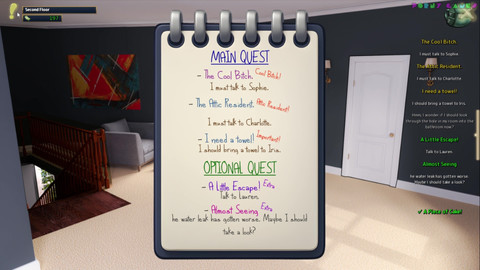 Second Floor
MAIN QUEST
- The Cool Bitch. Cool Bitch!
I must talk to Sophie.
- The Attic Resident. Attic Resident!
I must talk to Charlotte.
- I need a towel! Important!
I should bring a towel to Iris.
OPTIONAL QUEST
- A Little Escape! Extra
Talk to Lauren.
- Almost Seeing Extra
he water leak has gotten worse. Maybe I should
take a look?
The Cool Bitch
I must talk to Sophie
The Attic Resident
I must talk to Charlotte
I need a towel!
I should bring a towel to Iris.
A Little Escape!
Talk to Lauren.
Almost Seeing
he water leak has gotten worse.
Maybe I should take a look?